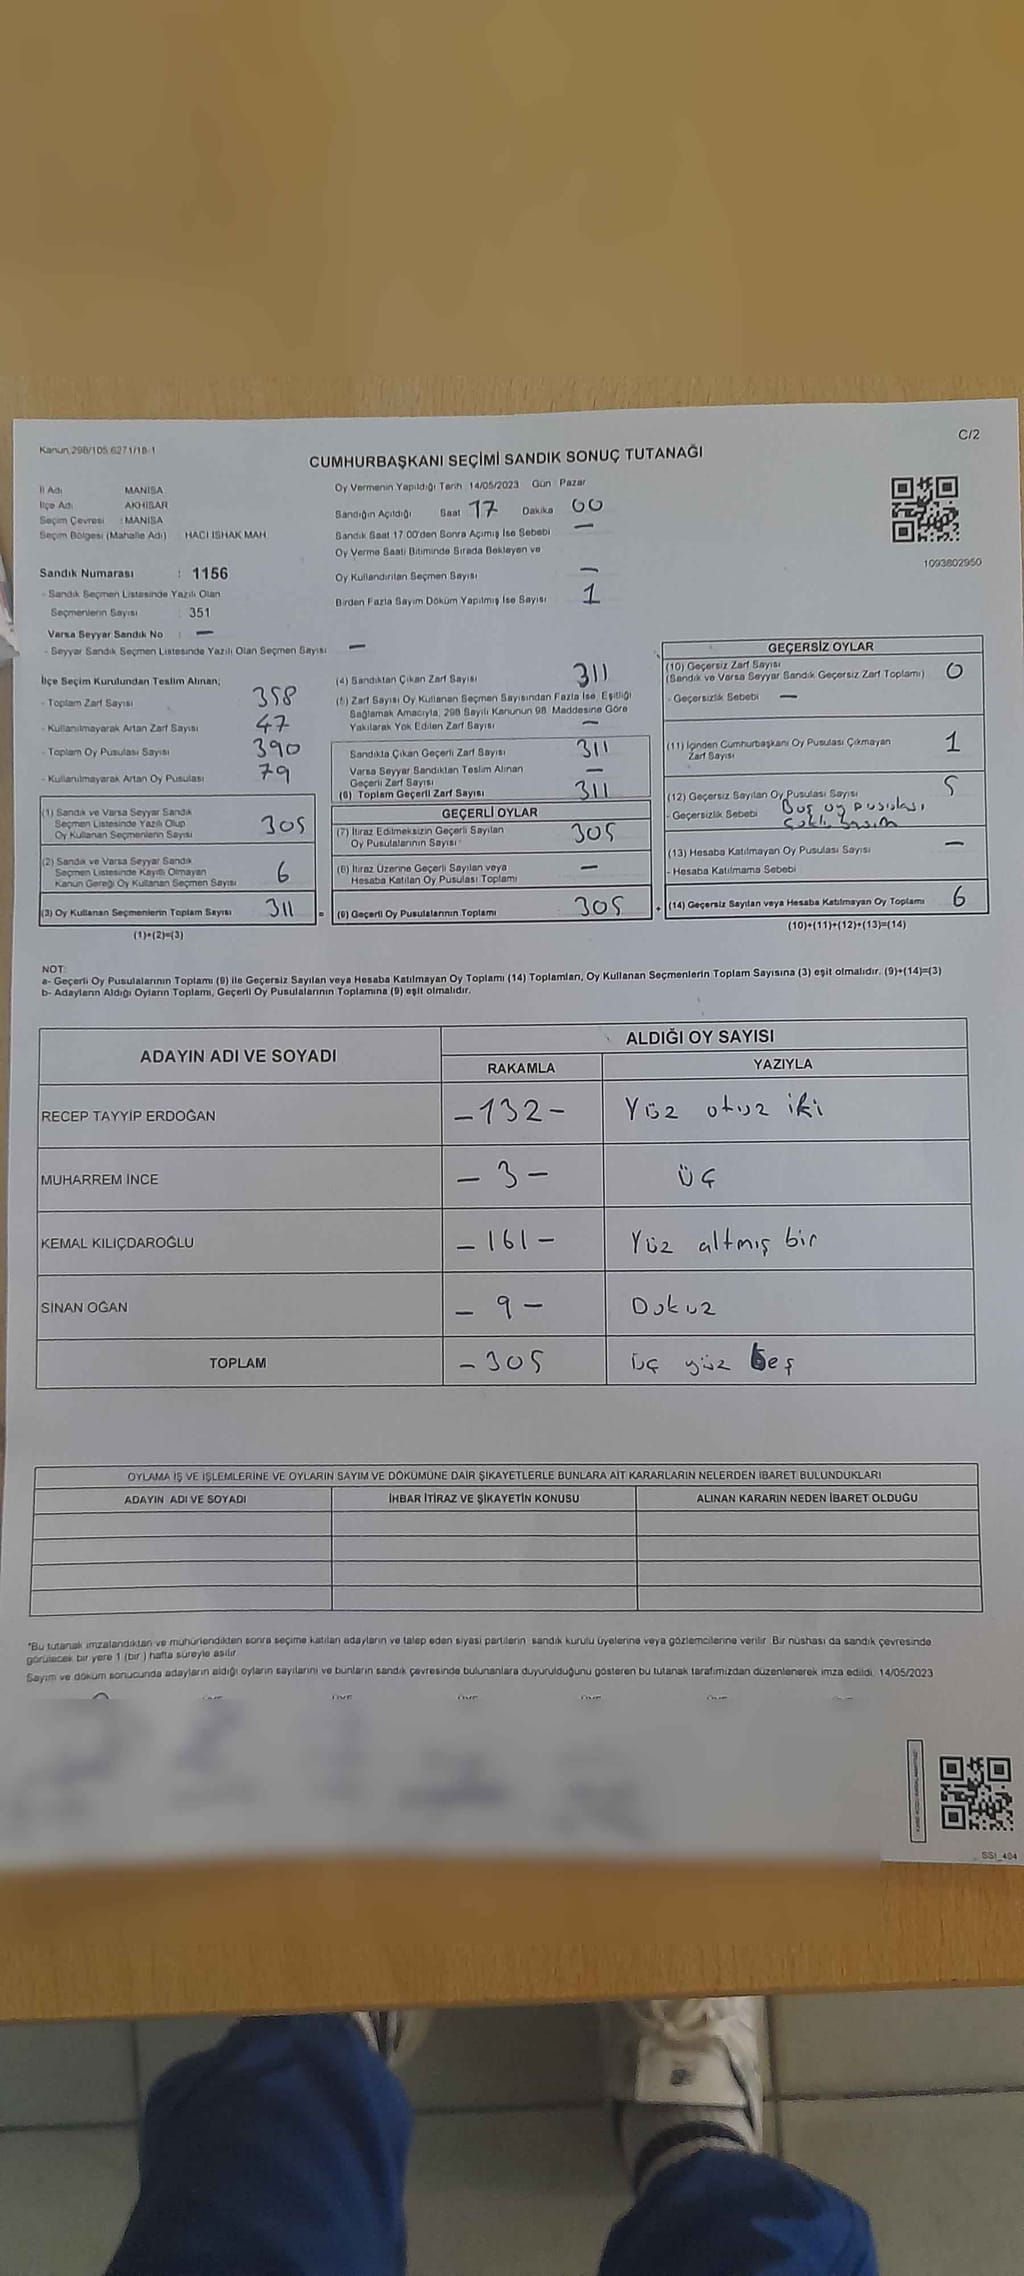 Kanun 298/105 6271/18-1
C/2
CUMHURBAŞKANI SEÇİMİ SANDIK SONUÇ TUTANAĞI
İl Adı MANİSA
İlçe Adı AKHİSAR
Seçim Çevresi : MANİSA
Seçim Bölgesi (Mahalle Adı) HACI ISHAK MAH
Sandık Numarası : 1156
- Sandık Seçmen Listesinde Yazılı Olan
Seçmenlerin Sayısı : 351
Varsa Seyyar Sandık No : —
- Seyyar Sandık Seçmen Listesinde Yazılı Olan Seçmen Sayısı —
Oy Vermenin Yapıldığı Tarih 14/05/2023 Gün Pazar
Sandığın Açıldığı Saat 17 Dakika 00
Sandık Saat 17.00'den Sonra Açımış İse Sebebi —
Oy Verme Saati Bitiminde Sırada Bekleyen ve
Oy Kullandırılan Seçmen Sayısı —
Birden Fazla Sayım Döküm Yapılmış İse Sayısı 1
1093802950
İlçe Seçim Kurulundan Teslim Alınan;
- Toplam Zarf Sayısı 358
- Kullanılmayarak Artan Zarf Sayısı 47
- Toplam Oy Pusulası Sayısı 390
- Kullanılmayarak Artan Oy Pusulası 79
(1) Sandık ve Varsa Seyyar Sandık
Seçmen Listesinde Yazılı Olup
Oy Kullanan Seçmenlerin Sayısı 305
(2) Sandık ve Varsa Seyyar Sandık
Seçmen Listesinde Kayıtlı Olmayan
Kanun Gereği Oy Kullanan Seçmen Sayısı 6
(3) Oy Kullanan Seçmenlerin Toplam Sayısı 311
(1)+(2)=(3)
(4) Sandıktan Çıkan Zarf Sayısı 311
(5) Zarf Sayısı Oy Kullanan Seçmen Sayısından Fazla İse, Eşitliği
Sağlamak Amacıyla, 298 Sayılı Kanunun 98. Maddesine Göre
Yakılarak Yok Edilen Zarf Sayısı —
Sandıkta Çıkan Geçerli Zarf Sayısı 311
Varsa Seyyar Sandıktan Teslim Alınan
Geçerli Zarf Sayısı —
(6) Toplam Geçerli Zarf Sayısı 311
GEÇERLİ OYLAR
(7) İtiraz Edilmeksizin Geçerli Sayılan
Oy Pusulalarının Sayısı 305
(8) İtiraz Üzerine Geçerli Sayılan veya
Hesaba Katılan Oy Pusulası Toplamı —
= (9) Geçerli Oy Pusulalarının Toplamı 305
GEÇERSİZ OYLAR
(10) Geçersiz Zarf Sayısı
(Sandık ve Varsa Seyyar Sandık Geçersiz Zarf Toplamı) 0
- Geçersizlik Sebebi —
(11) İçinden Cumhurbaşkanı Oy Pusulası Çıkmayan
Zarf Sayısı 1
(12) Geçersiz Sayılan Oy Pusulası Sayısı 5
- Geçersizlik Sebebi Boş oy pusulası
(13) Hesaba Katılmayan Oy Pusulası Sayısı —
- Hesaba Katılmama Sebebi
+ (14) Geçersiz Sayılan veya Hesaba Katılmayan Oy Toplamı 6
(10)+(11)+(12)+(13)=(14)
NOT:
a- Geçerli Oy Pusulalarının Toplamı (9) ile Geçersiz Sayılan veya Hesaba Katılmayan Oy Toplamı (14) Toplamları, Oy Kullanan Seçmenlerin Toplam Sayısına (3) eşit olmalıdır. (9)+(14)=(3)
b- Adayların Aldığı Oyların Toplamı, Geçerli Oy Pusulalarının Toplamına (9) eşit olmalıdır.
ADAYIN ADI VE SOYADI
ALDIĞI OY SAYISI
RAKAMLA YAZIYLA
RECEP TAYYİP ERDOĞAN -132- Yüz otuz iki
MUHARREM İNCE -3- üç
KEMAL KILIÇDAROĞLU -161- Yüz altmış bir
SİNAN OĞAN -9- Dokuz
TOPLAM -305 üç yüz beş
OYLAMA İŞ VE İŞLEMLERİNE VE OYLARIN SAYIM VE DÖKÜMÜNE DAİR ŞİKAYETLERLE BUNLARA AİT KARARLARIN NELERDEN İBARET BULUNDUKLARI
ADAYIN ADI VE SOYADI İHBAR İTİRAZ VE ŞİKAYETİN KONUSU ALINAN KARARIN NEDEN İBARET OLDUĞU
*Bu tutanak imzalandıktan ve mühürlendikten sonra seçime katılan adayların ve talep eden siyasi partilerin sandık kurulu üyelerine veya gözlemcilerine verilir. Bir nüshası da sandık çevresinde
görülecek bir yere 1 (bir ) hafta süreyle asılır
Sayım ve döküm sonucunda adayların aldığı oyların sayılarını ve bunların sandık çevresinde bulunanlara duyurulduğunu gösteren bu tutanak tarafımızdan düzenlenerek imza edildi. 14/05/2023
SSI_404